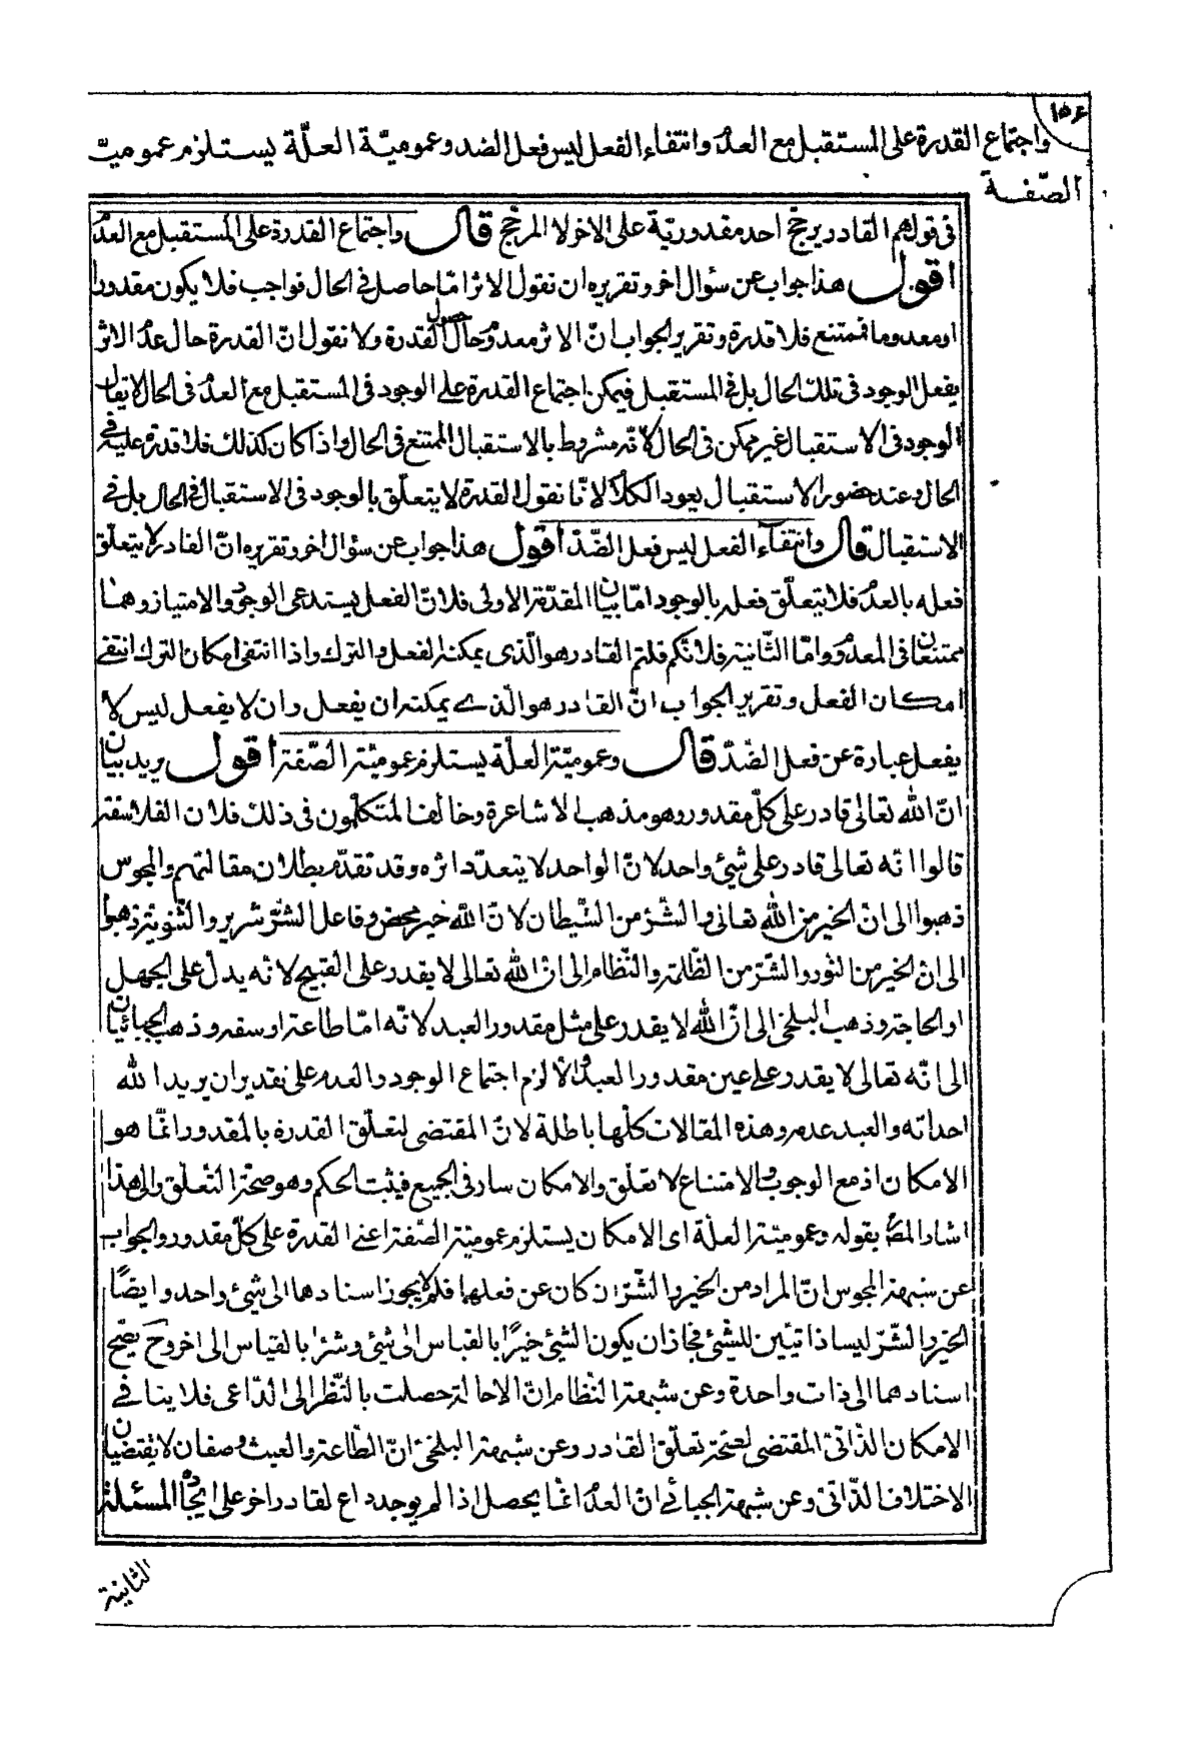 ١٥٤
واجتماع القدرة على المستقبل مع العدم وانتفاء الفعل ليس فعل الضد وعموميّة العلّة يستلزم عموميّة
الصّفة
فى قولهم القادر يرجّح احد مقدوريّة على الاخر لا لمرجّح قال واجتماع القدرة على المستقبل مع العدم
اقول هذا جواب عن سؤال اخر وتقريره ان نقول الاثر امّا حاصل فى الحال فواجب فلا يكون مقدورا
او معدوما فممتنع فلا قدرة وتقرير الجواب انّ الاثر معدوم حال حصول القدرة ولا نقول انّ القدرة حال عدم الاثر
يفعل الوجود فى تلك الحال بل فى المستقبل فيمكن اجتماع القدرة على الوجود فى المستقبل مع العدم فى الحال لا يقال
الوجود فى الاستقبال غير ممكن فى الحال لانّه مشروط بالاستقبال الممتنع فى الحال واذا كان كذلك فلا قدرة عليه فى
الحال وعند حضور الاستقبال يعود الكلام لانّا نقول القدرة لا يتعلّق بالوجود فى الاستقبال فى الحال بل فى
الاستقبال قال وانتفاء الفعل ليس فعل الضّد اقول هذا جواب عن سؤال اخر وتقريره انّ القادر لا يتعلّق
فعله بالعدم فلا يتعلّق فعله بالوجود امّا بيان المقدّمة الاولى فلانّ الفعل يستدعى الوجود والامتياز وهما
ممتنعان فى المعدوم وامّا الثّانية فلانّكم قلتم القادر هو الّذى يمكنه الفعل والترك واذا انتفى امكان الترك انتفى
امكان الفعل وتقرير الجواب انّ القادر هو الّذى يمكنه ان يفعل وان لا يفعل ليس لا
يفعل عبارة عن فعل الضّدّ قال وعموميّة العلّة يستلزم عموميّة الصّفة اقول يريد بيان
انّ الله تعالى قادر على كلّ مقدور وهو مذهب الاشاعرة وخالف المتكلّمون فى ذلك فلان الفلاسفة
قالوا انّه تعالى قادر على شئ واحد لانّ الواحد لا يتعدّد اثره وقد تقدّم بطلان مقالتهم والمجوس
ذهبوا الى انّ الخير من الله تعالى والشّر من الشّيطان لانّ الله خير محض وفاعل الشّر شرير والثّنويّة ذهبوا
الى انّ الخير من النّور والشّر من الظّلمة والنّظام الى انّ الله تعالى لا يقدر على القبيح لانّه يدلّ على الجهل
او الحاجة وذهب البلخى الى انّ الله لا يقدر على مثل مقدور العبد لانّه امّا طاعة او سفه وذهب الجبائيان
الى انّه تعالى لا يقدر على عين مقدور العبد والّا لزم اجتماع الوجود والعدم على تقدير ان يريد الله
احداثه والعبد عدمه وهذه المقالات كلّها باطلة لانّ المقتضى لتعلّق القدرة بالمقدور انّما هو
الامكان اذ مع الوجوب والامتناع لا تعلّق والامكان سار فى الجميع فيثبت الحكم وهو صحّة التعلّق والى هذا
اشار المصّ بقوله وعموميّة العلّة اى الامكان يستلزم عموميّة الصّفة اعنى القدرة على كلّ مقدور والجواب
عن شبهة المجوس انّ المراد من الخير والشّر ان كان عن فعلهما فلم لا يجوز اسنادهما الى شئ واحد وايضًا
الخير والشّر ليسا ذاتيّين للشّئ فجاز ان يكون الشئ خيرًا بالقياس الى شئ وشرّا بالقياس الى اخر وح يصّح
اسنادهما الى ذات واحدة وعن شبهة النّظام انّ الاحالة حصلت بالنّظر الى الدّاعى فلا ينافى
الامكان الذّاتىّ المقتضى لصحّة تعلّق القادر وعن شبهة البلخىّ انّ الطّاعة والعبث وصفان لا يقتضيان
الاختلاف الذّاتى وعن شبهة الجبائى انّ العدم انّما يحصل اذا لم يوجد داع لقادر اخر على ايجاده المسئلة
الثانية